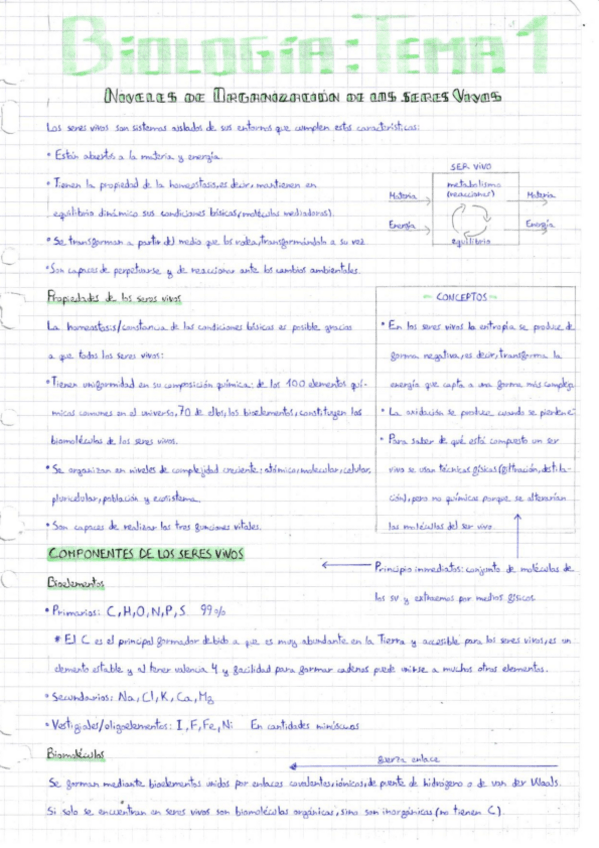 BIOLOGÍA: TEMA 1
NIVELES DE ORGANIZACIÓN DE LOS SERES VIVOS
Los seres vivos son sistemas aislados de sus entornos que cumplen estas características:
• Están abiertos a la materia y energía.
• Tienen la propiedad de la homeostasis, es decir, mantienen en
equilibrio dinámico sus condiciones básicas (moléculas mediadoras).
• Se transforman a partir del medio que los rodea, transformándolo a su vez
• Son capaces de perpetuarse y de reaccionar ante los cambios ambientales.
SER VIVO
Materia
Energía
metabolismo
(reacciones)
equilibrio
Materia
Energía
Propiedades de los seres vivos
La homeostasis/constancia de las condiciones básicas es posible gracias
a que todos los seres vivos:
• Tienen uniformidad en su composición química: de los 100 elementos quí-
micos comunes en el universo, 70 de ellos, los bioelementos, constituyen las
biomoléculas de los seres vivos.
• Se organizan en niveles de complejidad creciente: atómico, molecular, celular,
pluricelular, población y ecosistema.
• Son capaces de realizar las tres funciones vitales.
- CONCEPTOS -
• En los seres vivos la entropía se produce de
forma negativa, es decir, transforma la
energía que capta a una forma más compleja
• La oxidación se produce cuando se pierden e⁻
• Para saber de qué está compuesto un ser
vivo se usan técnicas físicas (filtración, destila-
ción), pero no químicas porque se alterarían
las moléculas del ser vivo
COMPONENTES DE LOS SERES VIVOS
Principios inmediatos: conjunto de moléculas de
los sv y extraemos por medios físicos
Bioelementos
• Primarios: C, H, O, N, P, S 99%
* El C es el principal formador debido a que es muy abundante en la Tierra y accesible para los seres vivos, es un
elemento estable y al tener valencia 4 y facilidad para formar cadenas puede unirse a muchos otros elementos.
• Secundarios: Na, Cl, K, Ca, Mg
• Vestigiales/oligoelementos: I, F, Fe, Ni En cantidades minúsculas
Biomoléculas
fuerza enlace
Se forman mediante bioelementos unidos por enlaces covalentes, iónicos, de puente de hidrógeno o de van der Waals.
Si solo se encuentran en seres vivos son biomoléculas orgánicas, sino son inorgánicas (no tienen C).